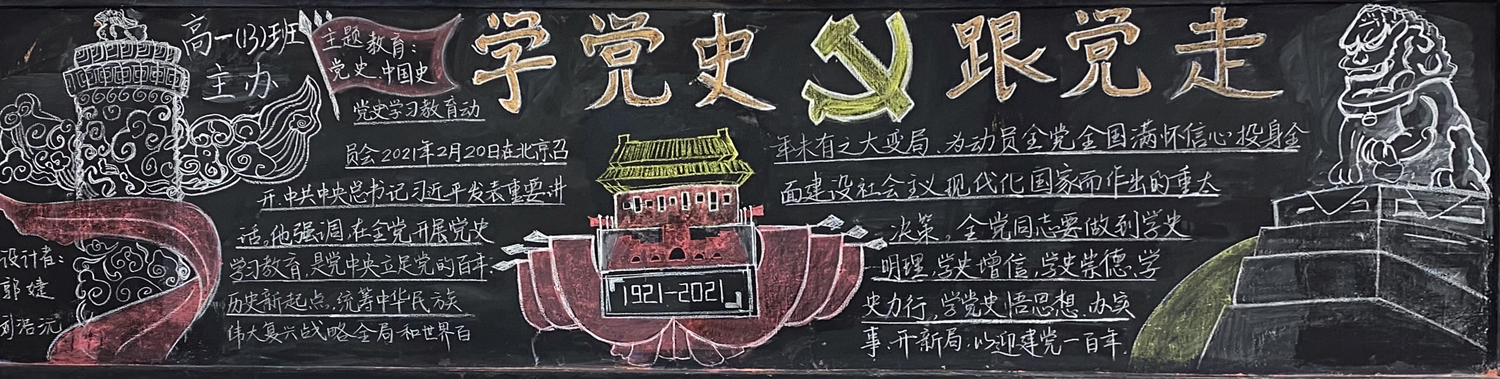 高一(13)班
主办
主题教育：
党史、中国史
学党史 跟党走
党史学习教育动
员会2021年2月20日在北京召
开,中共中央总书记习近平发表重要讲
话,他强调,在全党开展党史
学习教育,是党中央立足党的百年
历史新起点,统筹中华民族
伟大复兴战略全局和世界百
年未有之大变局、为动员全党全国满怀信心投身全
面建设社会主义现代化国家而作出的重大
决策,全党同志要做到学史
明理,学史增信,学史崇德,学
史力行,学党史悟思想、办实
事、开新局,以迎建党一百年.
1921-2021
设计者：
郭婕
刘浩沅